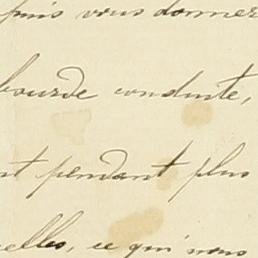 puis vous donner
bourde conduite,
nt pendant plus
elles, ce qui nous